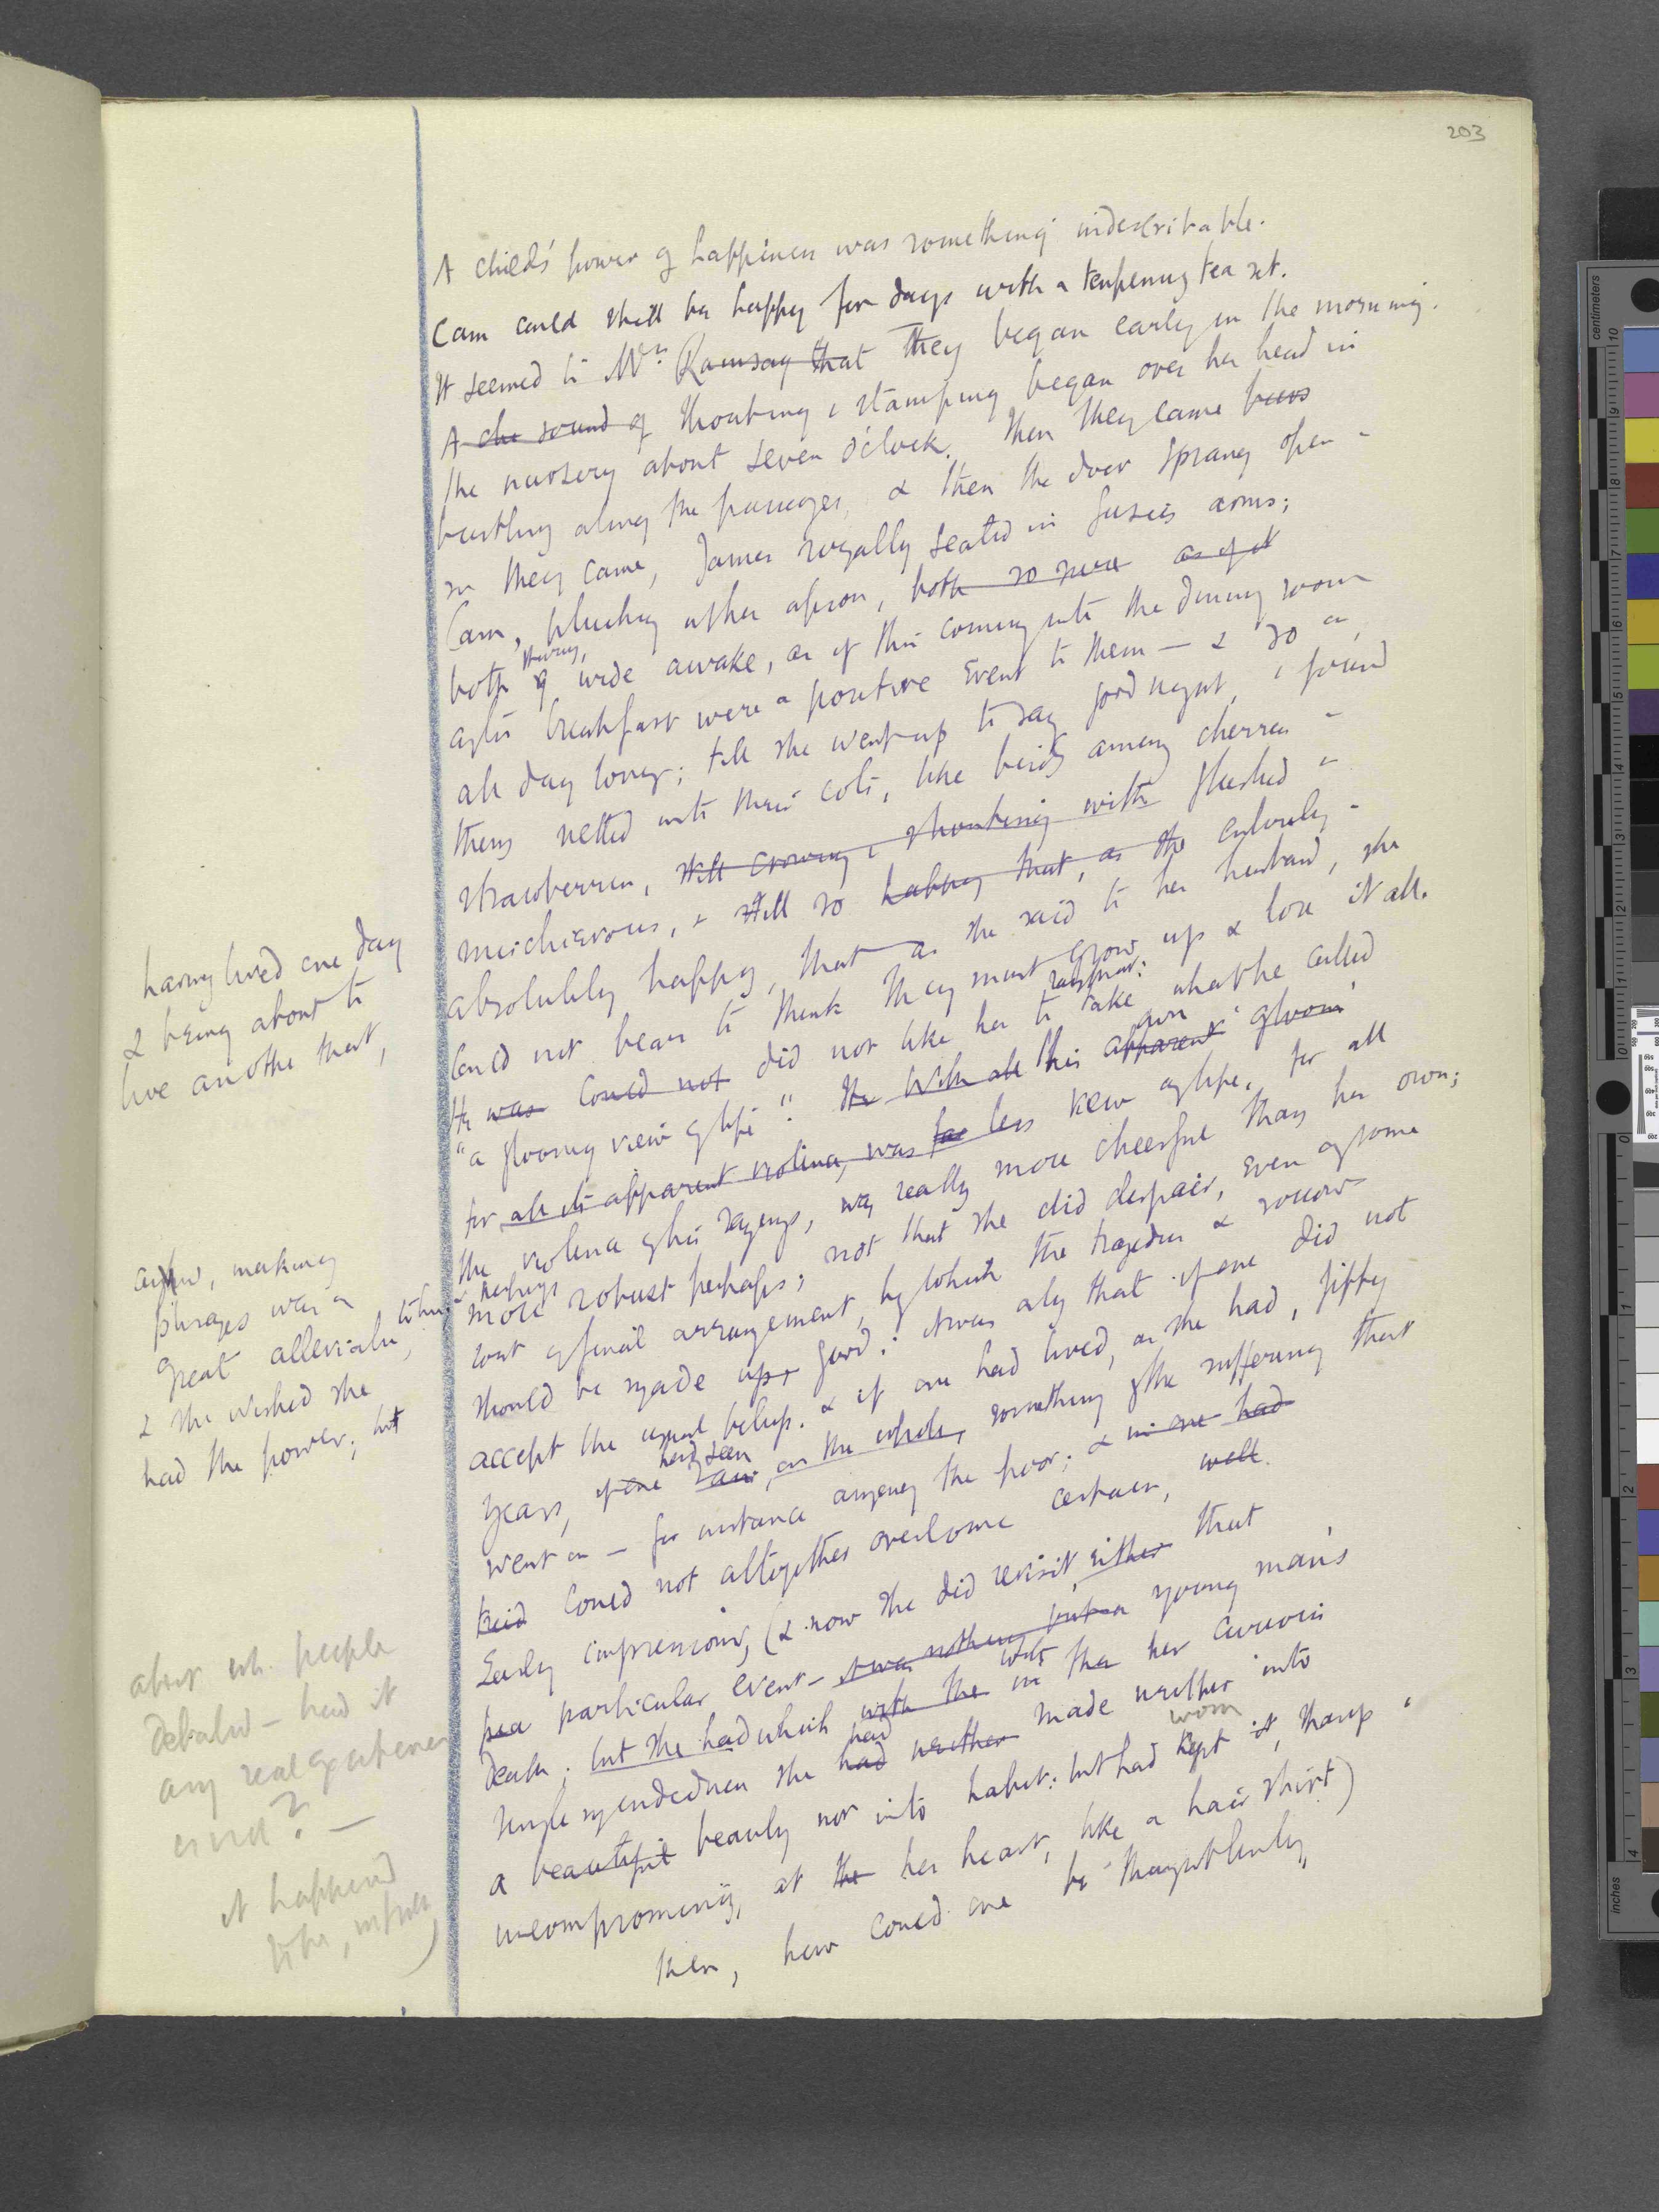 203
A child's power of happiness was something indescribable.
Cam could still be happy for days with a tenpenny tea set.
It seemed to Mrs. Ramsay that They began early in the morning.
A the sound of shouting & stamping began over her head in
the nursery about seven o'clock. Then they came
bustling along the passages, & then the door sprang open -
in they came, James royally seated in Susies arms;
Cam, plucking at her apron, both so sure as if it
both wide awake, as if this coming into the dining room
after breakfast were a positive Event to them — & so on,
all day long; till she went up to say good night, & found
them netted into their cots, like birds among cherries -
strawberries, still crowing & shouting with flushed &
mischievous, & still so happy that, as the entirely -
absolutely happy, that as she said to her husband, she
having lived one day
& being about to
live another that,
could not bear to think they must grow up & lose it all.
He was could not did not like her to take what he called
"a gloomy view of life". He With all his apparent own gloom
for all its apparent violence, was far less view of life. for all
the violence of his sayings, was really more cheerful than her own;
more robust perhaps; not that she did despair, even of some
after, making
phrases was a
great alleviation, to him
& she wished she
had the power; but
perhaps
sort of final arrangement, by which the tragedies & sorrows
should be made up good: it was only that if one did not
accept the usual beliefs. & if one had lived, as she had, fifty
years, if one saw had seen, on the whole, something of the suffering that
went on — for instance among the poor; & in one had
could not altogether overcome certain, well.
Early impressions, (& now she did revisit, either that
particular event — it was nothing but a young man's
death; but she had which with the in the her curious
single mindedness she had neither had made neither into
a beautiful beauty nor into habit: but had kept worn it, sharp &
uncompromising, at the her heart, like a hair shirt)
then, how could one be thoughtlessly,
about wh. people
debated — had it
any real existence
or not? —
it happened
to be, in full